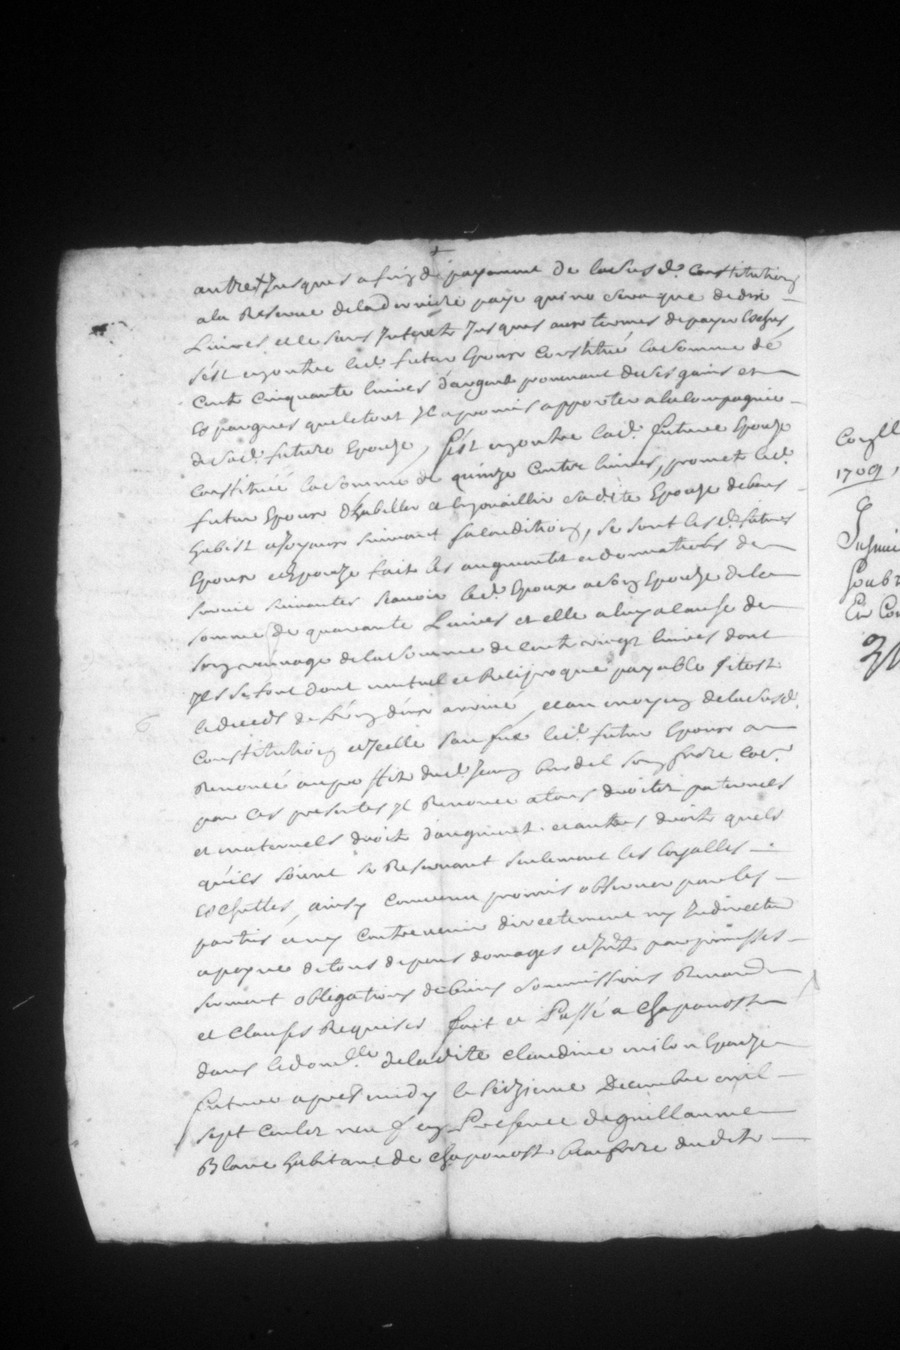 autre Jusques a fin de payement de la susd. Constitution
a la Reserve de la derniere paye qui ne sera que de dix
Livres et le sans Interets Jusques aux termes de payer eschus
s'est en outre led. futur Epoux Constitué la somme de
Cent Cinquante livres d'argent provenant de ses gains et
Espargnes que le tout Il a promis apporter a la Compagnie
de sad. future Epouze, s'est en outre lad. future Epouze
Constituée la somme de quinze Cents livres, promet led.
futur Epoux d'habiller et Enjoailler sadite Epouze de bons
habits et Joyaux suivant sa Condition, se sont lesd. futurs
Epoux et Epouze faits les augments et donnations de
survie suivantes scavoir led. Epoux a son Epouze de la
somme de quarante Livres et elle a luy a Cause de
son mariage de la somme de Cent vingt livres dont
Ils se font dont mutuel et Reciproque payable sitost
le deceds de l'un d'eux arrivé, et au moyen de la susd.
Constitution led. futur Epoux a
Renoncé au proffit dud. Jean son frere Coe.
par Ces presentes Il Renonce a tous droits paternels
et maternels droits d'augment et autres droits quels
qu'ils soient se Reservant seulement les loyalles
Eschettes, ainsy Convenu promis observer par les
parties et ny Contrevenir directement ny Indirectem
a peyne de tous depens domages et Intts par promesses
serment obligations de biens soumissions Renon
et Clauses Requises fait et Passé a Chaponost
dans le domlle de ladite Claudine milon Epouze
future apres midy le seizieme Decembre mil
sept Cents neuf en Presence de guillaume
Blanc habitant de Chaponost beaufrere dudit
Coll
1709,
Insinu
En Con